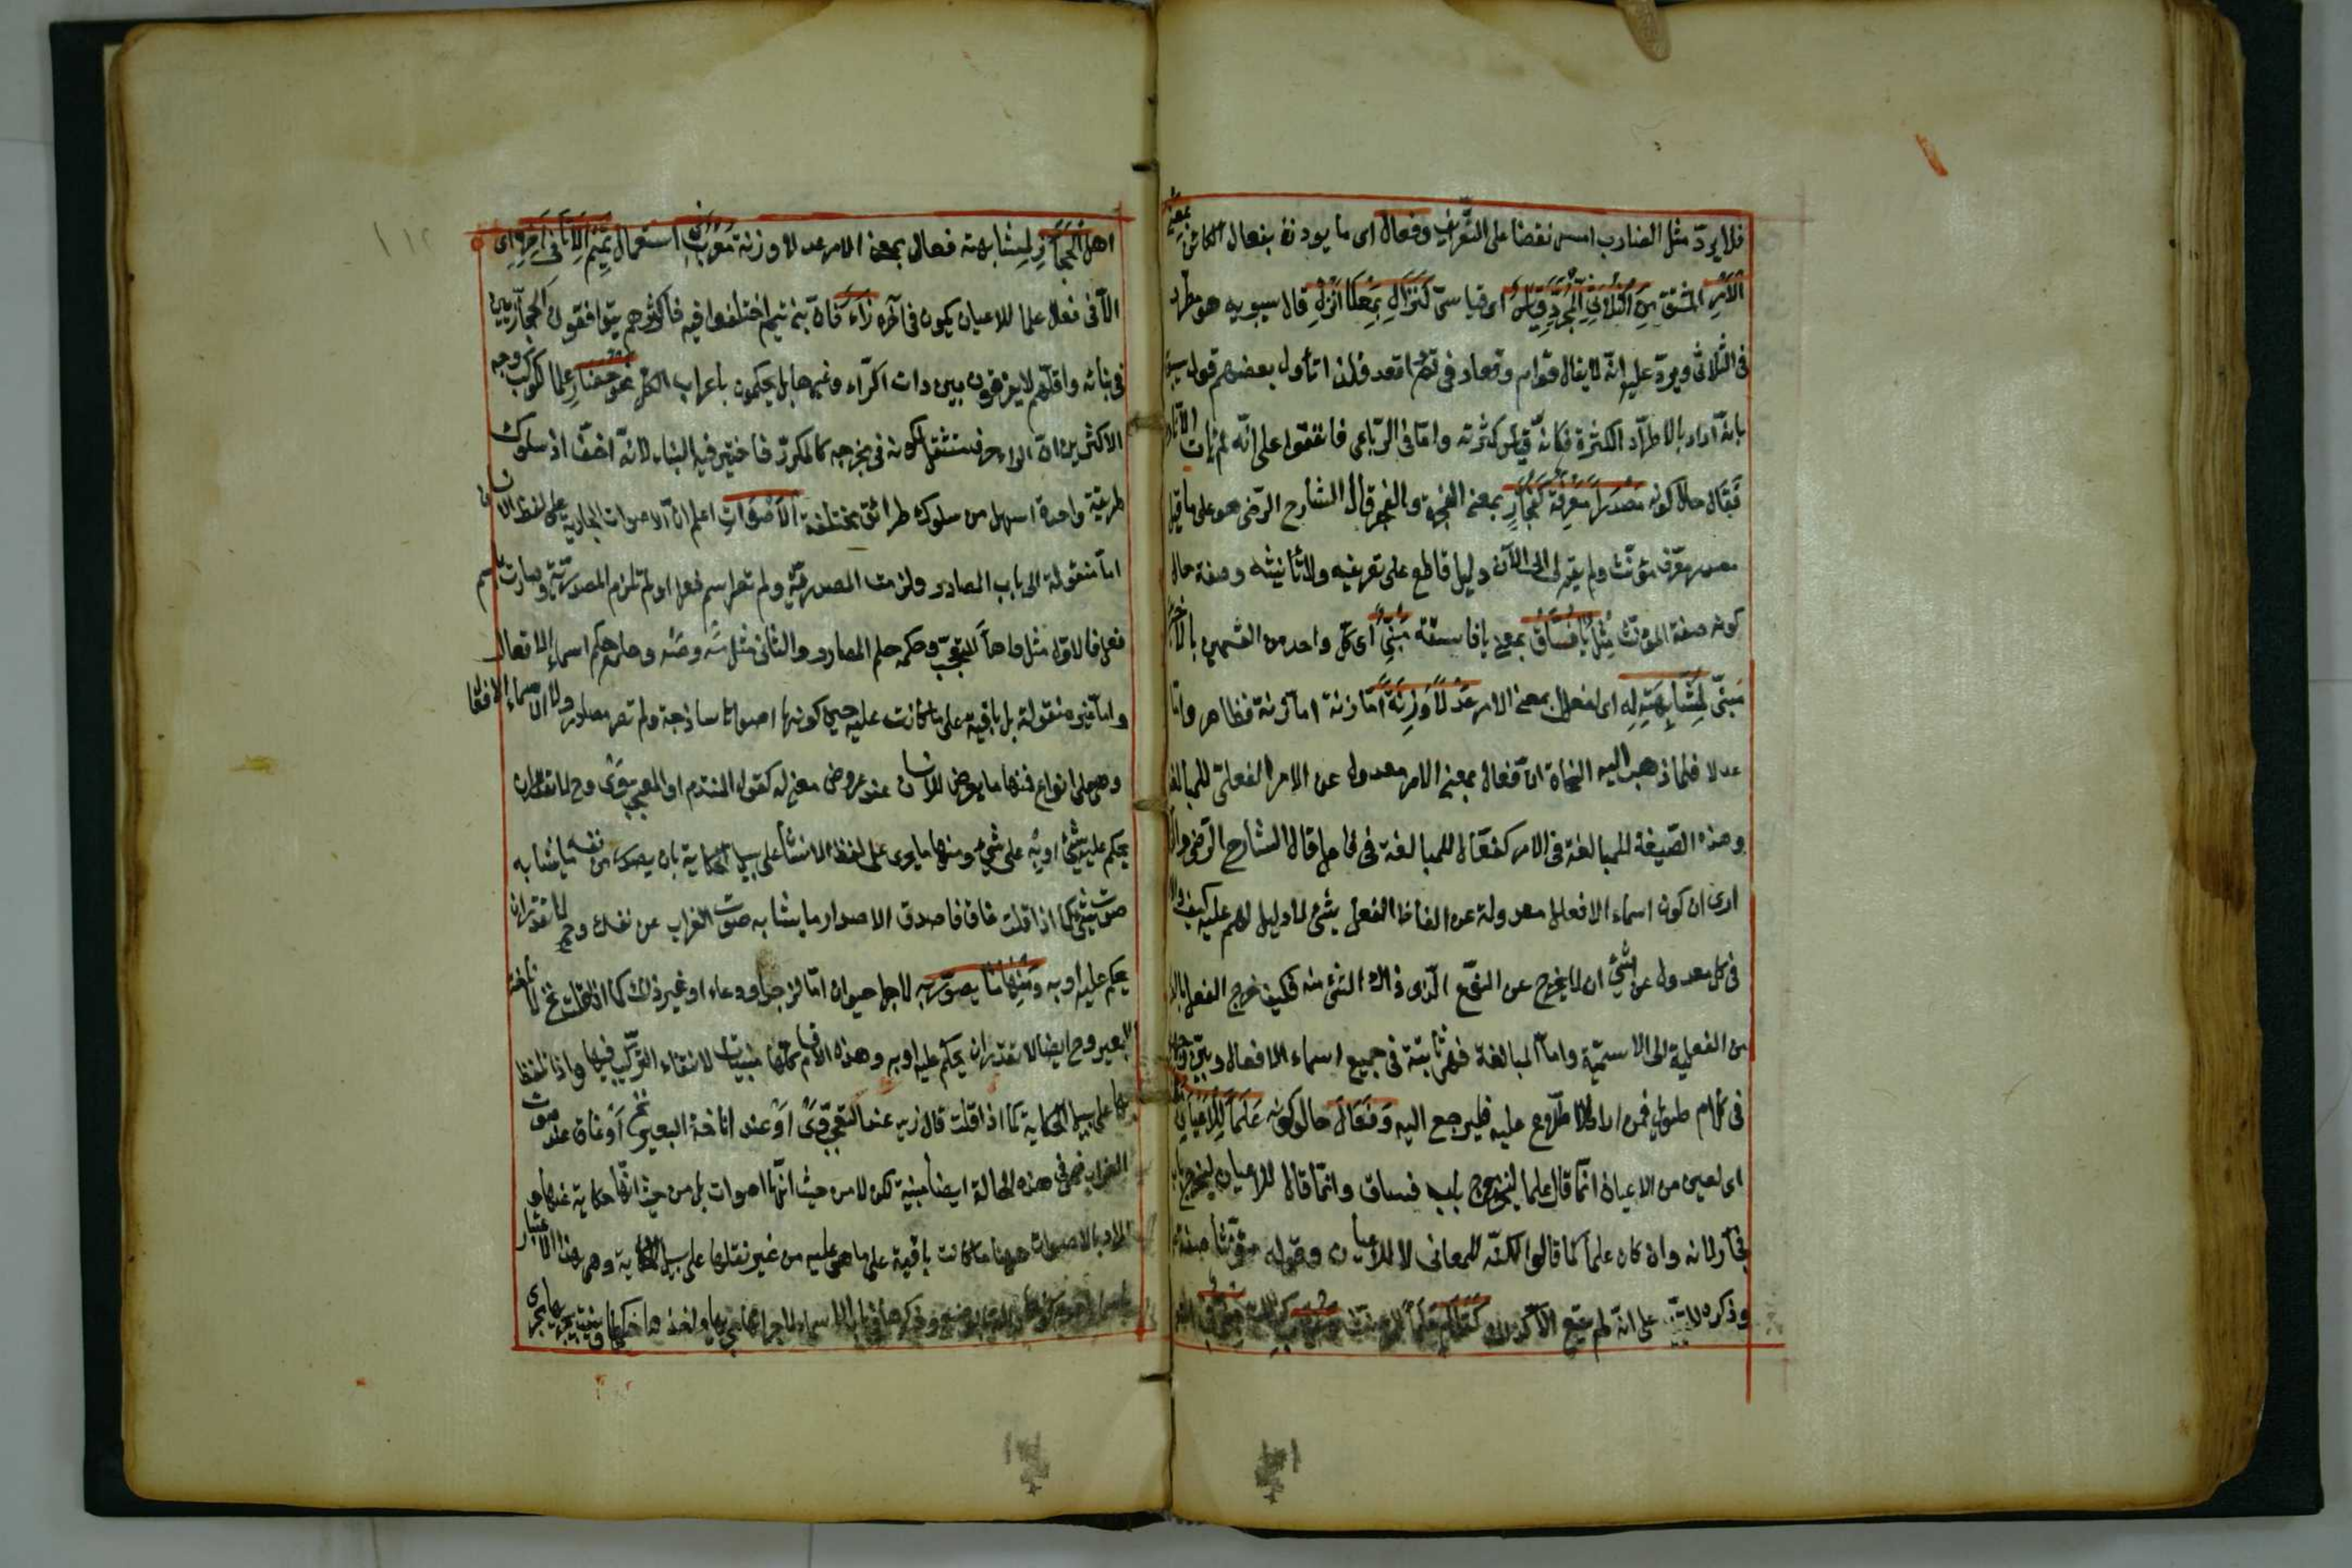 فلا يرد مثل الضارب امس نقضا على التعريف وفعال اى ما يوزن بفعال الكائن بمعنى
الأمر المشتق من الثلاثى المجرد قياس اى قياسى كنزال بمعنى انزل قال سيبويه هو مطرد
فى الثلاثى ويرد عليه انه لا يقال قوام وقعاد فى قم واقعد فلذا تأول بعضهم قول
بانه اراد بالاطراد الكثرة فكانه قياس لكثرته واما فى الرباعى فاتفقوا على انه لم يأت
فعال حال كونه مصدرا معرفة كفجار بمعنى الفجرة والفجر قال الشارح الرضى هو على ما قيل
مصدر معرف مؤنث ولم يقم لى الى الآن دليل قاطع على تعريفه ولا تأنيثه وصفة حال
كونه صفة المؤنث مثل يا فساق بمعنى يا فاسقة مبنى اى كل واحد من القسمين
مبنى لمشابهته له اى لفعال بمعنى الامر عدلا وزنة اما زنة فظاهر واما
عدلا فلما ذهب اليه النحاة ان فعال بمعنى الامر معدول عن الامر الفعلى للمبالغة
وهذه الصيغة للمبالغة فى الامر كفعال للمبالغة فى فاعل قال الشارح الرضى
ارى ان كون اسماء الافعال معدولة عن الفاظ الفعل شئ لا دليل لهم عليه كيف
فى كل معدول عن شئ ان لا يخرج عن النوع الذى ذلك الشئ منه فكيف خرج الفعل
من الفعلية الى الاسمية واما المبالغة فهى ثابتة فى جميع اسماء الافعال وبين
فى كلام طويل فمن اراد الاطلاع عليه فليرجع اليه وفعال حال كونه علما للاعيان
اى لعين من الاعيان انما قال علما ليخرج باب فساق وانما قال للاعيان ليخرج باب
فجار لانه وان كان علما كما قالوا لكنه للمعانى لا للاعيان وقوله مؤنثا صفة
وذكره للتنبيه على انه لم يقع الا كذلك كقطام علما لمؤنث
اهل الحجاز لمشابهته فعال بمعنى الامر عدلا وزنة معرب فى استعمال تميم الا ما فى آخره راء اى
الا فى فعال علما للاعيان يكون فى آخره راء فان بنى تميم اختلفوا فيه فاكثرهم يوافقون الحجازيين
فى بنائه واقلهم لا يفرقون بين ذات الراء وغيرها بل يحكمون باعراب الكل نحو حضار علما لكوكب وجه
الاكثرين ان الراء حرف مستثقل لكونه فى مخرجه كالمكرر فاختير فيه البناء لانه اخف اذ سلوك
طريقة واحدة اسهل من سلوك طرائق مختلفة الاصوات اعلم ان الاصوات الجارية على لفظ الانسان
اما منقولة الى باب المصادر ولزمت المصدرية ولم تصر اسم فعل او لم تلزم المصدرية وصارت اسم
فعل فالاول مثل واها للتعجب وحكمه حكم المصادر والثانى مثل مه وصه وحكمه حكم اسماء الافعال
واما غير منقولة بل باقية على ما كانت عليه حين كونها اصواتا ساذجة ولم تصر مصادر ولا اسماء الافعال
وهى على انواع فمنها ما يعرض للانسان عند عروض معنى له كقول المتندم او المعجب وى وح لا تقدر ان
يحكم عليه بشئ او به على شئ ومنها ما يجرى على لفظ الانسان على سبيل الحكاية بان يصدر من نفسه ما يشابه
صوت شئ كما اذا قلت غاق قاصدا لاصدار ما يشابه صوت الغراب عن نفسك وح لا تقدر ان
يحكم عليه او به ومنها ما يصوت به لاجل حيوان اما لزجر او دعاء او غير ذلك كما اذا قلت نخ لاناخة
البعير وح ايضا لا تقدر ان يحكم عليه او به وهذه الاقسام كلها مبنيات لانتفاء التركيب فيها واذا تلفظ
بها على سبيل الحكاية كما اذا قلت قال زيد عند التعجب وى او عند اناخة البعير نخ او غاق عند صوت
الغراب فهى فى هذه الحالة ايضا مبنية لكن لا من حيث انها اصوات بل من حيث انها حكاية عنها و
المراد بالاصوات ههنا ما كانت باقية على ما هى عليه من غير نقلها على سبيل الحكاية وهى بهذا الاعتبار